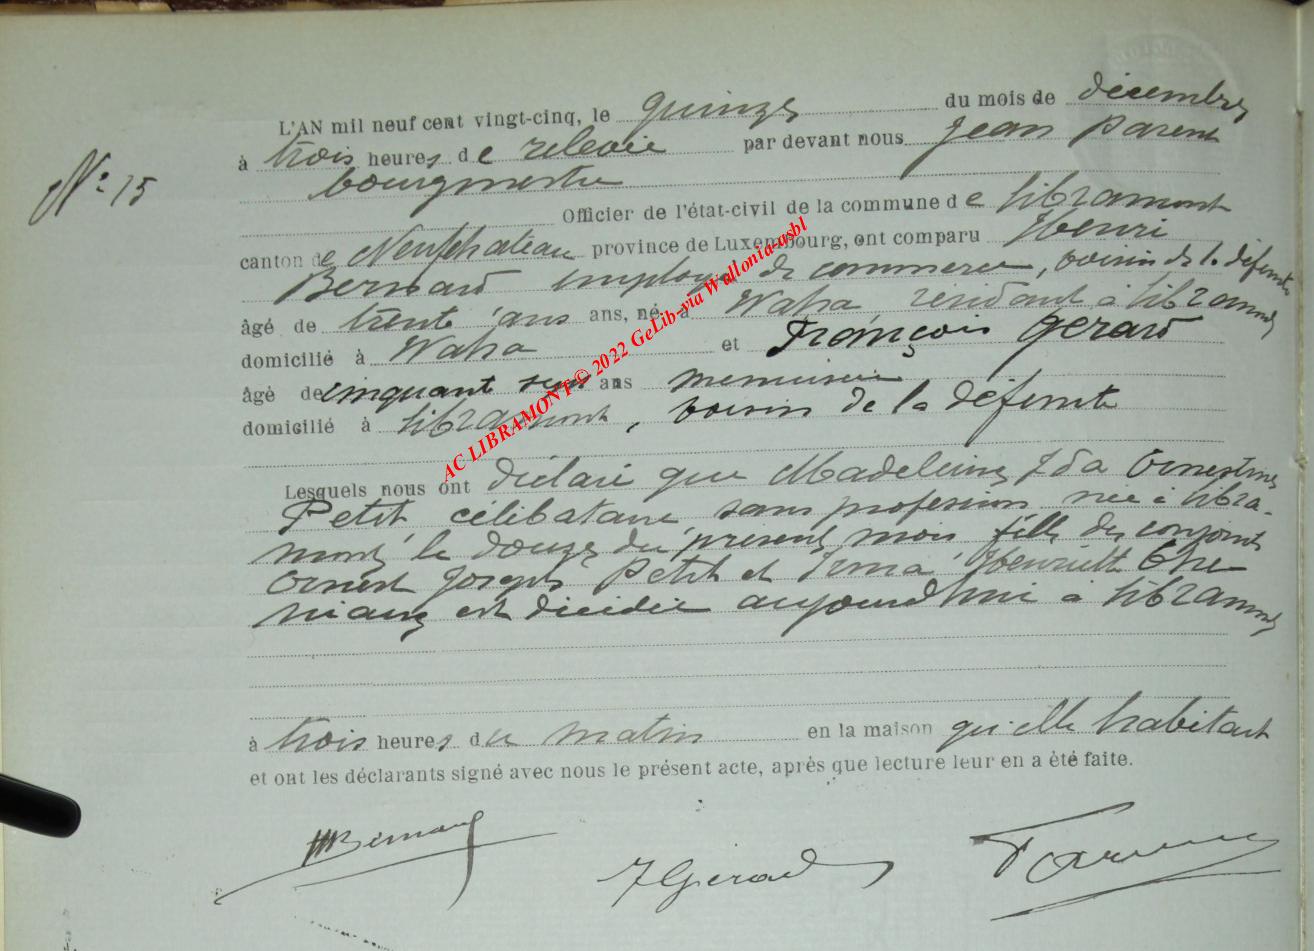 L'AN mil neuf cent vingt-cinq, le quinze du mois de décembre
à trois heures de relevée par devant nous Jean Parent
N° 15
bourgmestre
Officier de l'état-civil de la commune de Libramont
canton de Neufchateau province de Luxembourg, ont comparu Henri
Bernard employé de commerce, voisin de la défunte
âgé de trente ans ans, né à Waha résidant à Libramont
domicilié à Waha et François Gerard
âgé de cinquant ans menuisier
domicilié à Libramont, voisin de la défunte
Lesquels nous ont déclaré que Madeleine Ida Ernestine
Petit célibataire sans profession née à Libra-
mont le douze du présent mois fille des conjoints
Ernest Joseph Petit et Irma Henriette
est décédée aujourd'hui à Libramont
à trois heures du matin en la maison qu'elle habitait
et ont les déclarants signé avec nous le présent acte, après que lecture leur en a été faite.
HBernard
FGerard
AC LIBRAMONT © 2022 GeLib-via Wallonia-asbl